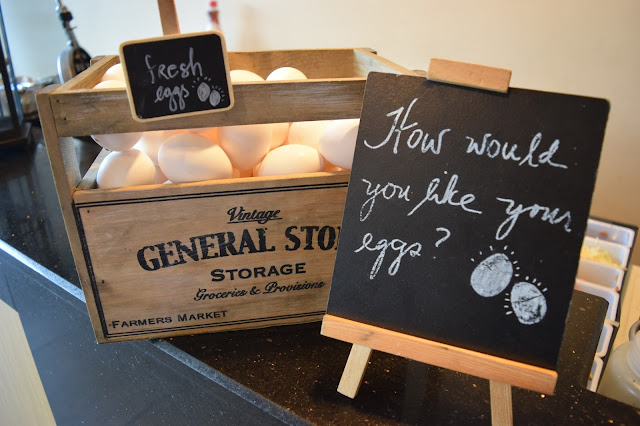 fresh
eggs
Vintage
GENERAL STO
STORAGE
Groceries & Provisions
FARMERS MARKET
How would
you like your
eggs?